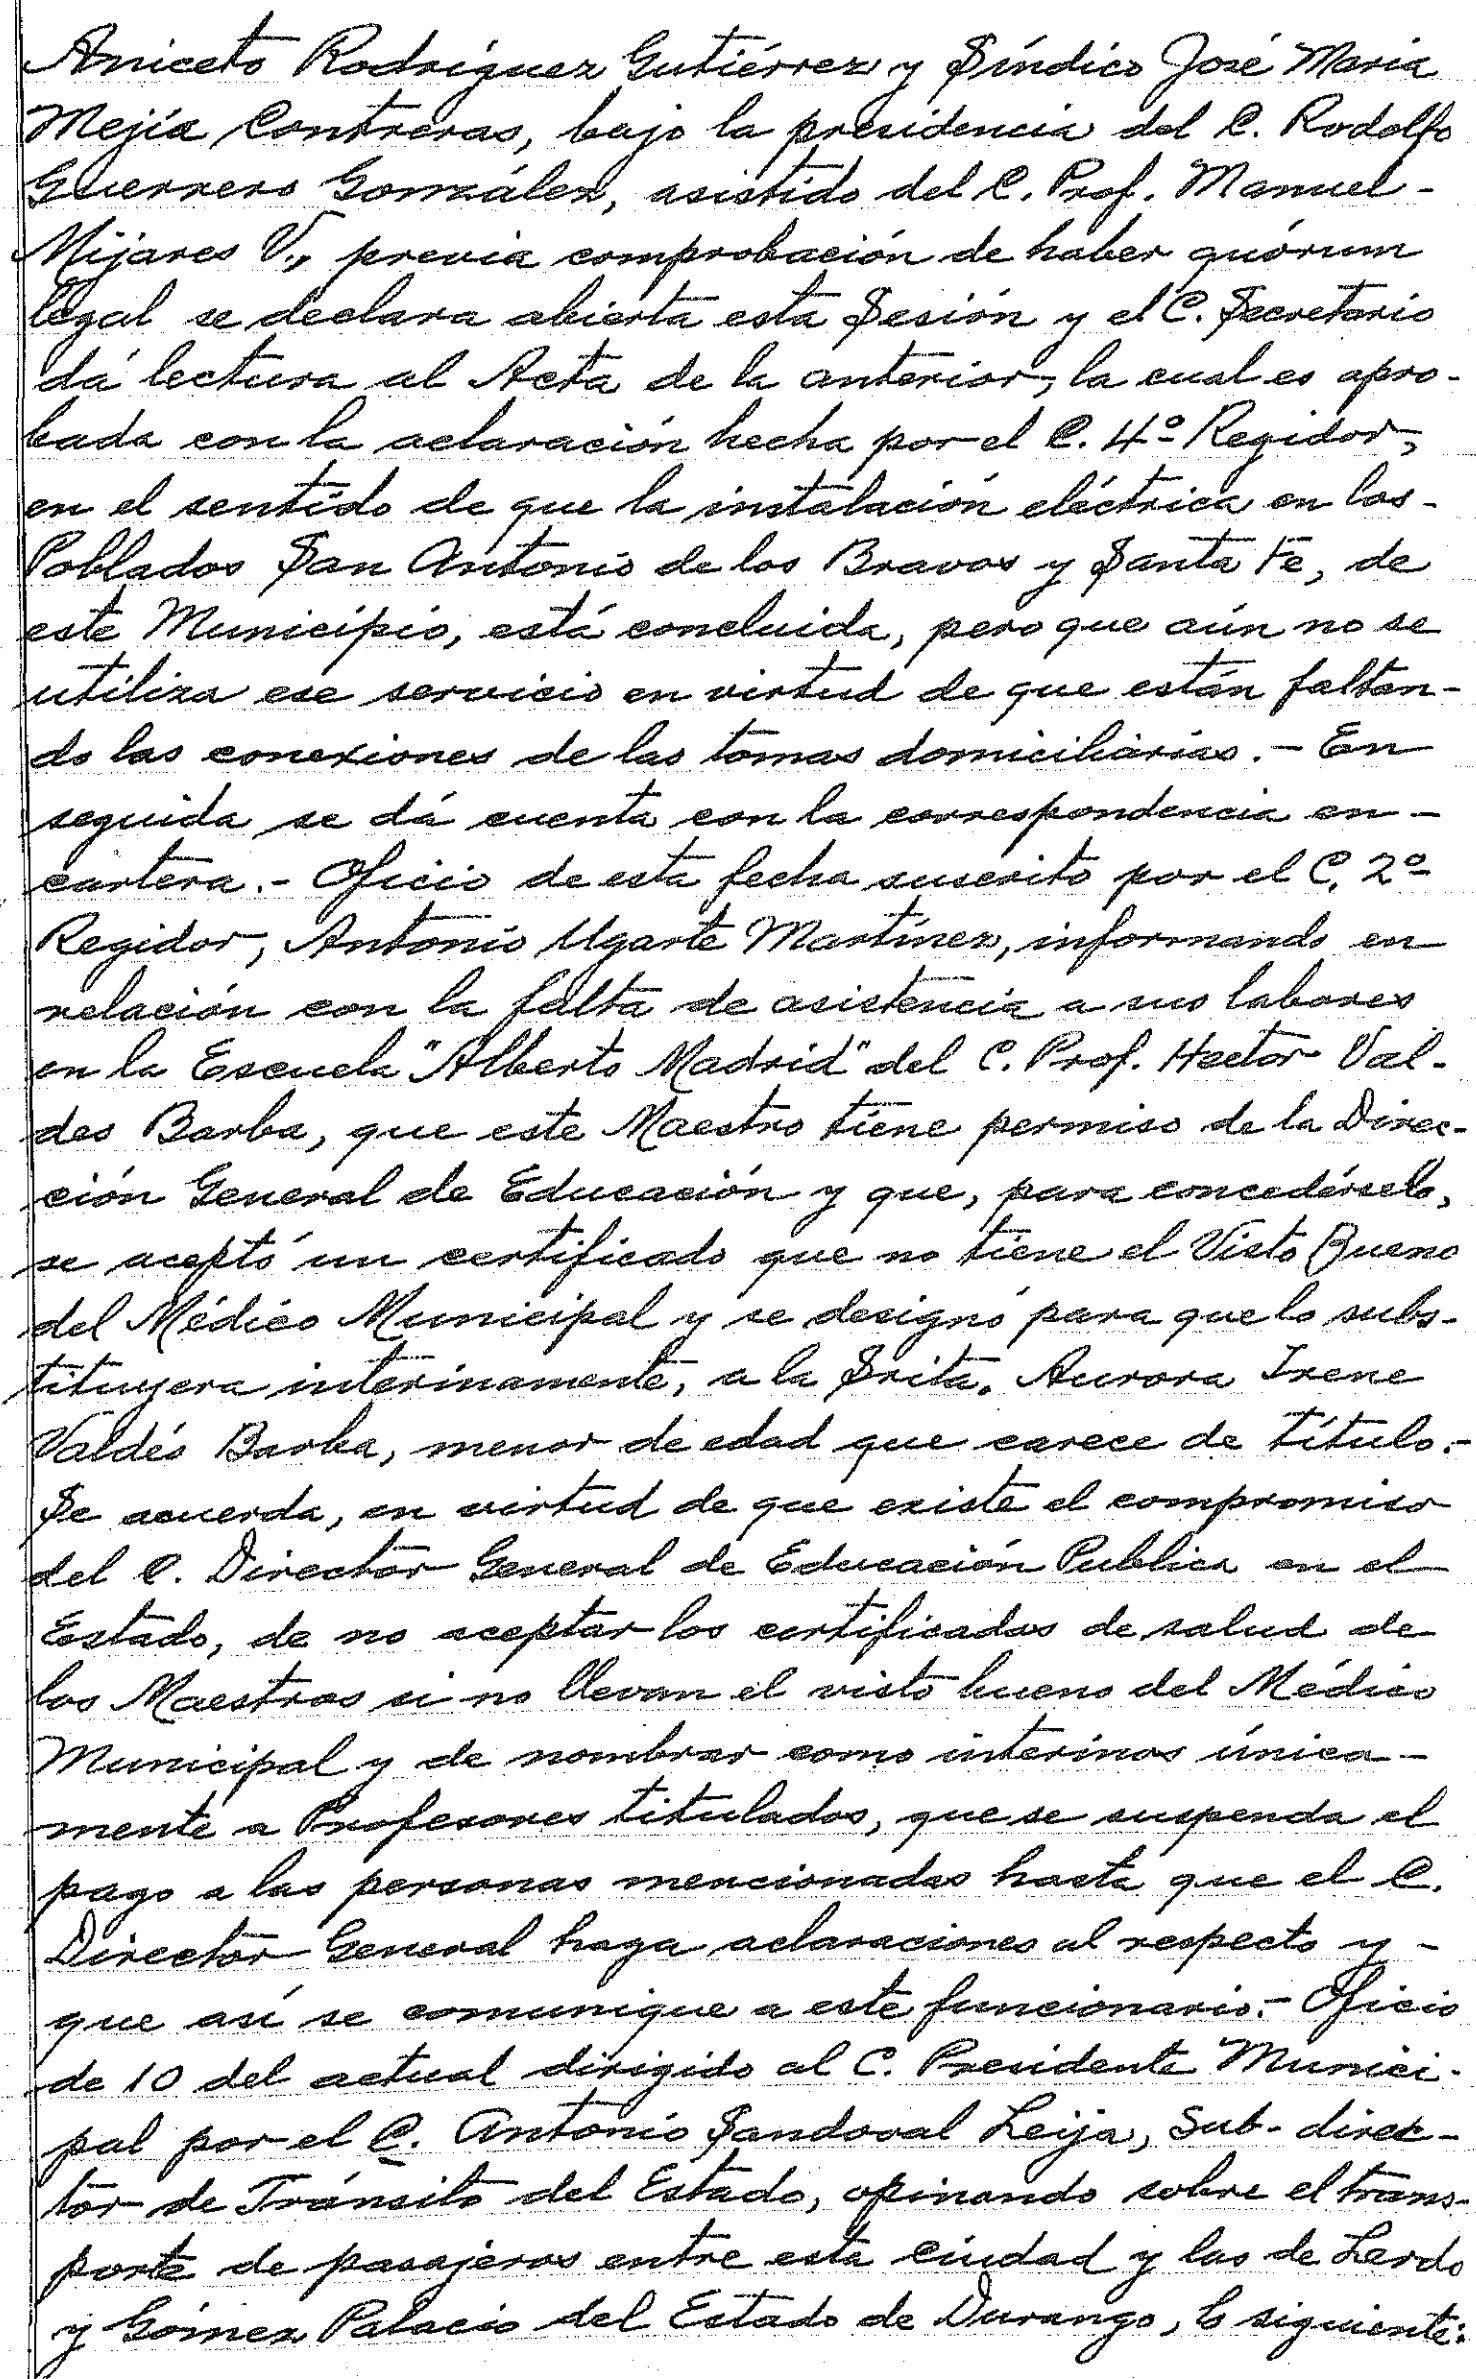 Aniceto Rodríguez Gutiérrez y Síndico José María
Mejía Contreras, bajo la presidencia del C. Rodolfo
Guerrero González, asistido del C. Prof. Manuel -
Mijares V., previa comprobación de haber quórum
legal se declara abierta esta Sesión y el C. Secretario
dá lectura al Acta de la anterior, la cual es apro-
bada con la aclaración hecha por el C. 4º Regidor,
en el sentido de que la instalación eléctrica en los -
Poblados San Antonio de los Bravos y Santa Fe, de
este Municipio, está concluida, pero que aún no se
utiliza ese servicio en virtud de que están faltan-
do las conexiones de las tomas domiciliarias. - En
seguida se dá cuenta con la correspondencia en -
cartera. - Oficio de esta fecha suscrito por el C. 2º
Regidor, Antonio Ugarte Martínez, informando en
relación con la falta de asistencia a sus labores
en la Escuela "Alberto Madrid" del C. Prof. Hector Val-
des Barba, que este Maestro tiene permiso de la Direc-
ción General de Educación y que, para concedérselo,
se aceptó un certificado que no tiene el Visto Bueno
del Médico Municipal y se designó para que lo subs-
tituyera interinamente, a la Srita. Aurora Irene
Valdés Barba, menor de edad que carece de Título. -
Se acuerda, en virtud de que existe el compromiso
del C. Director General de Educación Publica en el
Estado, de no aceptar los certificados de salud de
los Maestros si no llevan el visto bueno del Médico
Municipal y de nombrar como interinos única -
mente a Profesores titulados, que se suspenda el
pago a las personas mencionadas hasta que el C.
Director General haga aclaraciones al respecto y -
que así se comunique a este funcionario. - Oficio
de 10 del actual dirigido al C. Presidente Munici-
pal por el C. Antonio Sandoval Leija, Sub-direc-
tor de Tránsito del Estado, opinando sobre el trans-
porte de pasajeros entre esta ciudad y las de Lerdo
y Gómez Palacio del Estado de Durango, lo siguiente: